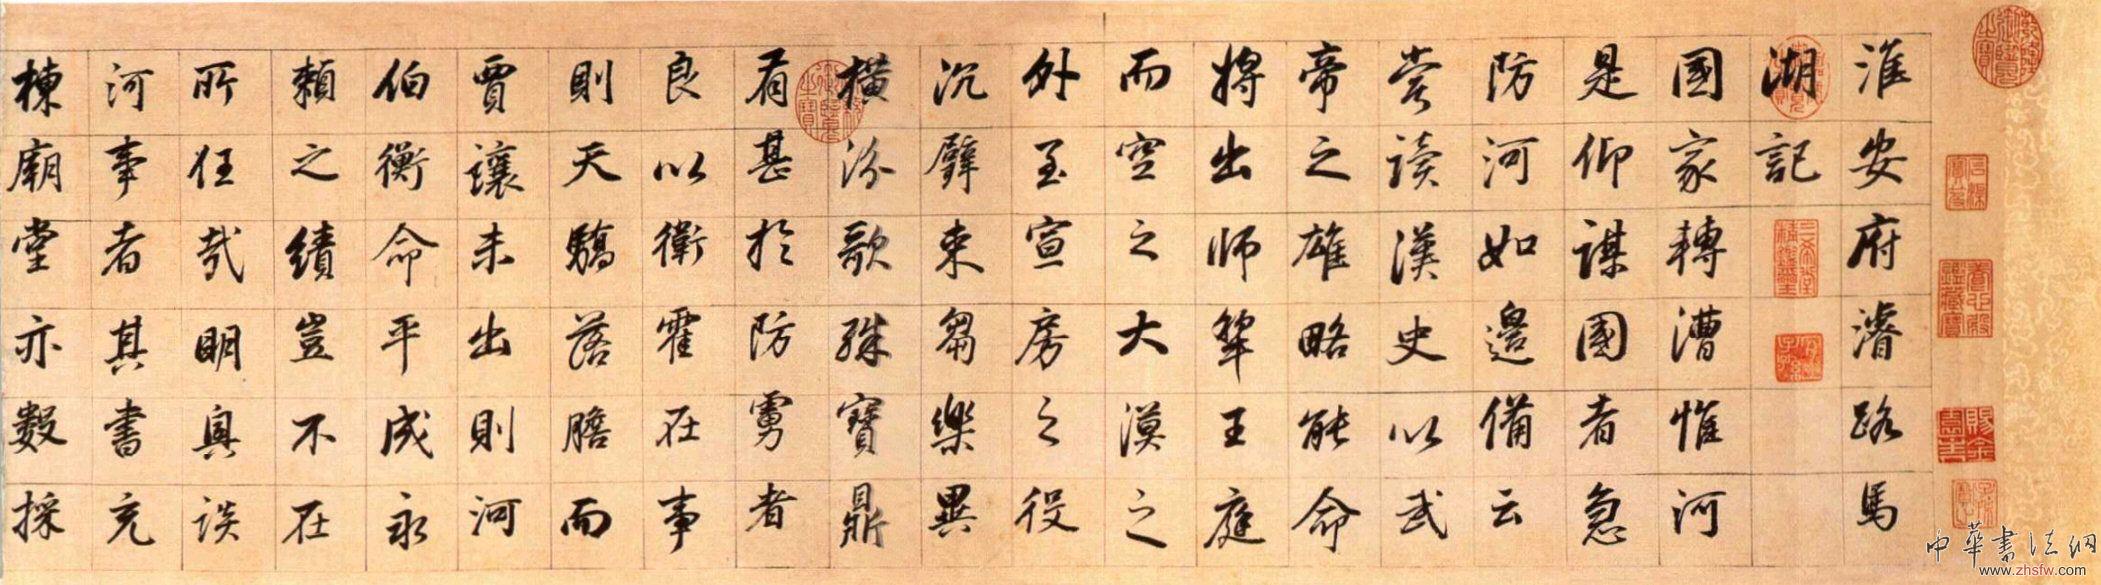 淮安府濬路馬
湖記
國家轉漕惟河
是仰謀國者急
防河如邊備云
嘗讀漢史以武
帝之雄略能命
將出師犂王庭
而空之大漠之
外至宣房之役
沉璧束芻樂異
橫汾歌殊寶鼎
有甚於防雩者
良以衛霍在事
則天驕落膽而
賈讓未出則河
伯衡命平成永
賴之績豈不在
所任哉明興談
河事者其書充
棟廟堂亦數採
中華書法網
www.zhsfw.com